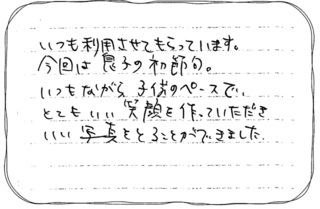 いつも利用させてもらっています。
今回は息子の初節句。
いつもながら子供のペースで、
とてもいい笑顔を作っていただき
いい写真をとることができました。